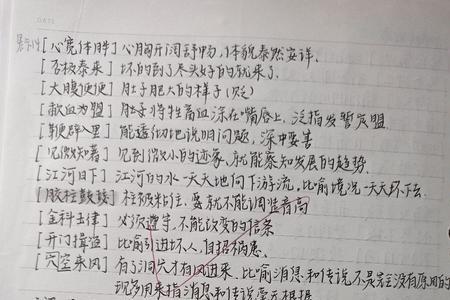 [心宽体胖] 心胸开阔舒畅,体貌泰然安详.
[否极泰来] 坏的到了尽头好的就来了.
[大腹便便] 肚子肥大的样子(贬)
[歃血为盟] 将牲畜血涂在嘴唇上,泛指发誓定盟
[鞭辟入里] 能透彻地说明问题,深中要害
[见微知著] 见到微小的迹象,就能察知发展的趋势.
[江河日下] 江河的水一天天地向下游流,比喻境况一天天坏下去
[胶柱鼓瑟] 柱被粘住,瑟就不能调准音高
[金科玉律] 必须遵守,不能改变的信条
[开门揖盗] 比喻引进坏人,自招祸患.
[穴空来风] 有了洞穴才有风进来,比喻消息和传说不是完全没有原因的
现多用来指消息和传说毫无根据